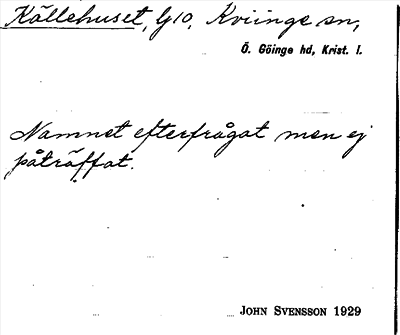 Källehuset, lg 10, Kviinge sn,
Ö. Göinge hd, Krist. l.
Namnet efterfrågat men ej
påträffat.
JOHN SVENSSON 1929